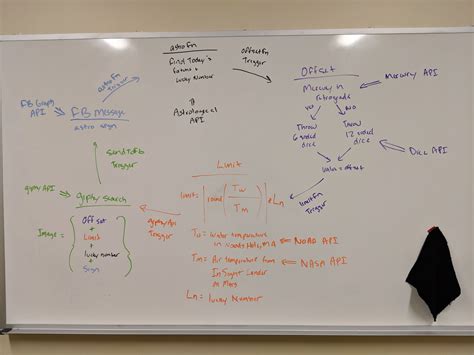 astroFn
Find Today's
fortune +
Lucky Number
offsetFn
Trigger
astroFn
Trigger
Astrological
API
Offset
Mercury in
retrograde
Yes
NO
Mercury API
Throw
6 sided
dice
Throw
12 sided
dice
Dice API
Value = offset
limitFn
Trigger
FB Graph
API
FB message
astro sign
SendToFb
Trigger
giphy API
giphy search
giphy
Trigger
Image =
Offset
+
Limit
+
lucky number
+
Sign
Limit
limit = round ( Tw / Tm ) Ln
Tw = Water temperature
in Woods Hole, MA
NOAA API
Tm = Air temperature from
InSight Lander
on Mars
NASA API
Ln = lucky Number